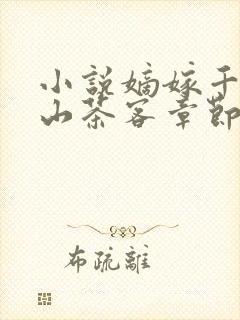 小説嫡嫁千
山茶客章節
布疏離